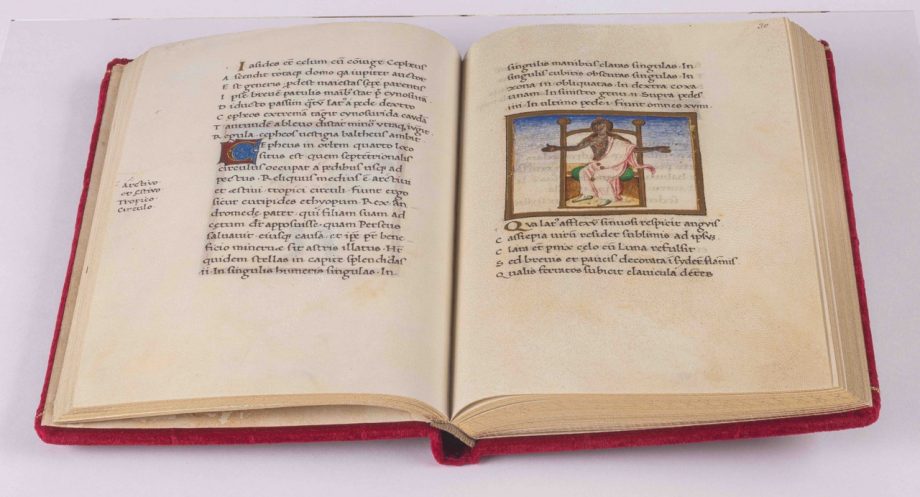 Iasides et celum cū cōiuge Cepheus
A scendit totaq; domo qa iupiter auctor
E st generis pdest maiestas sepe parentis
I pse breue patulis manib; stat p cynosura
D iducto passim qtū lat a pede dextro
C ephei extrema tagit cynosurida cauda
T antundē ab leuo distat minor utraq; iugit
R egula cepheos uestigia baltheus ambit
Cepheus in ortem quarto loco
situs est quem septemtrionalis
circulus occupat a pedibus usq; ad
pectus. Reliquus medius e arctiui
et aestiui tropici circuli. Fiunt ergo
sicut euripides ethyopum. Rex an
dromede pater. qui filiam suam ad
cetum dr apposuisse. quam Perseus
saluauit eiusq; causa. et ipse p bene
ficio minerue sit astris illatus. Ht
quidem stellas in capite splendidas
ii. In singulis humeris singulas. In
Arctivo
et estivo
tropico
circulo
30
singulis manibus claras singulas. In
singulis cubitis obscuras singulas. In
xona in obliquatas. In dextra coxa
unam. In sinistro genu ii. Supra pedes
iiii. In ultimo pede i. Fiunt omnes xviiii.
Qua lat' afflexu sinuosi respicit anguis
C assiepia uirū residet sublimis ad ipsius
C lara et pnix celo cū Luna refulsit
S ed breuis et paucis decorata ī sydere flamis
Q ualis ferratos subicit clauicula dētes